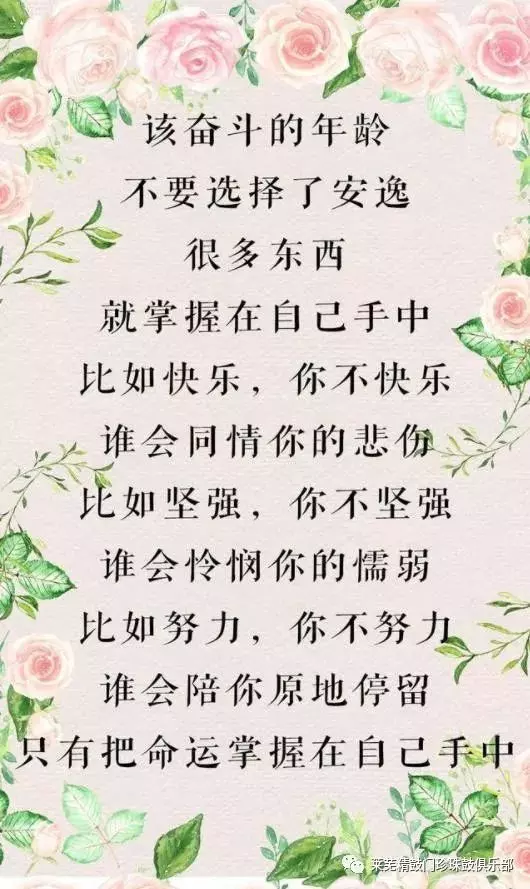 该奋斗的年龄
不要选择了安逸
很多东西
就掌握在自己手中
比如快乐，你不快乐
谁会同情你的悲伤
比如坚强，你不坚强
谁会怜悯你的懦弱
比如努力，你不努力
谁会陪你原地停留
只有把命运掌握在自己手中
莱芜精鼓门珍珠鼓俱乐部